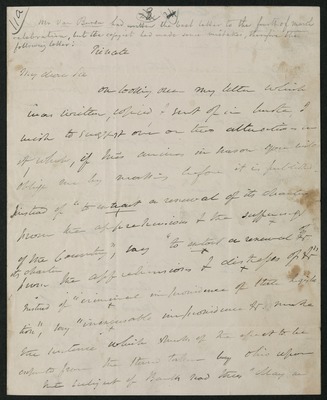 Mr Van Buren had written the next letter to the
but the copyist had made some mistakes, therefore the
following letter:
Private
My dear sir
On looking over my letter which
was written, copied & sent off in haste I
wish to suggest one or two alterations in
if this arrives in season you will
oblige me by making before it is published
Instead of "to extract a renewal of its charter
from the apprehensions & the sufferings
of the Country", say "to extort a renewal of
its charter from the apprehensions & distress of &c"
Instead of "criminal improvidence of State legisla
tion", say "inexcusable improvidence &c" make
the sentence which speaks of the effect to be
from the taken by Ohio upon
the subject of Banks read thus "May a